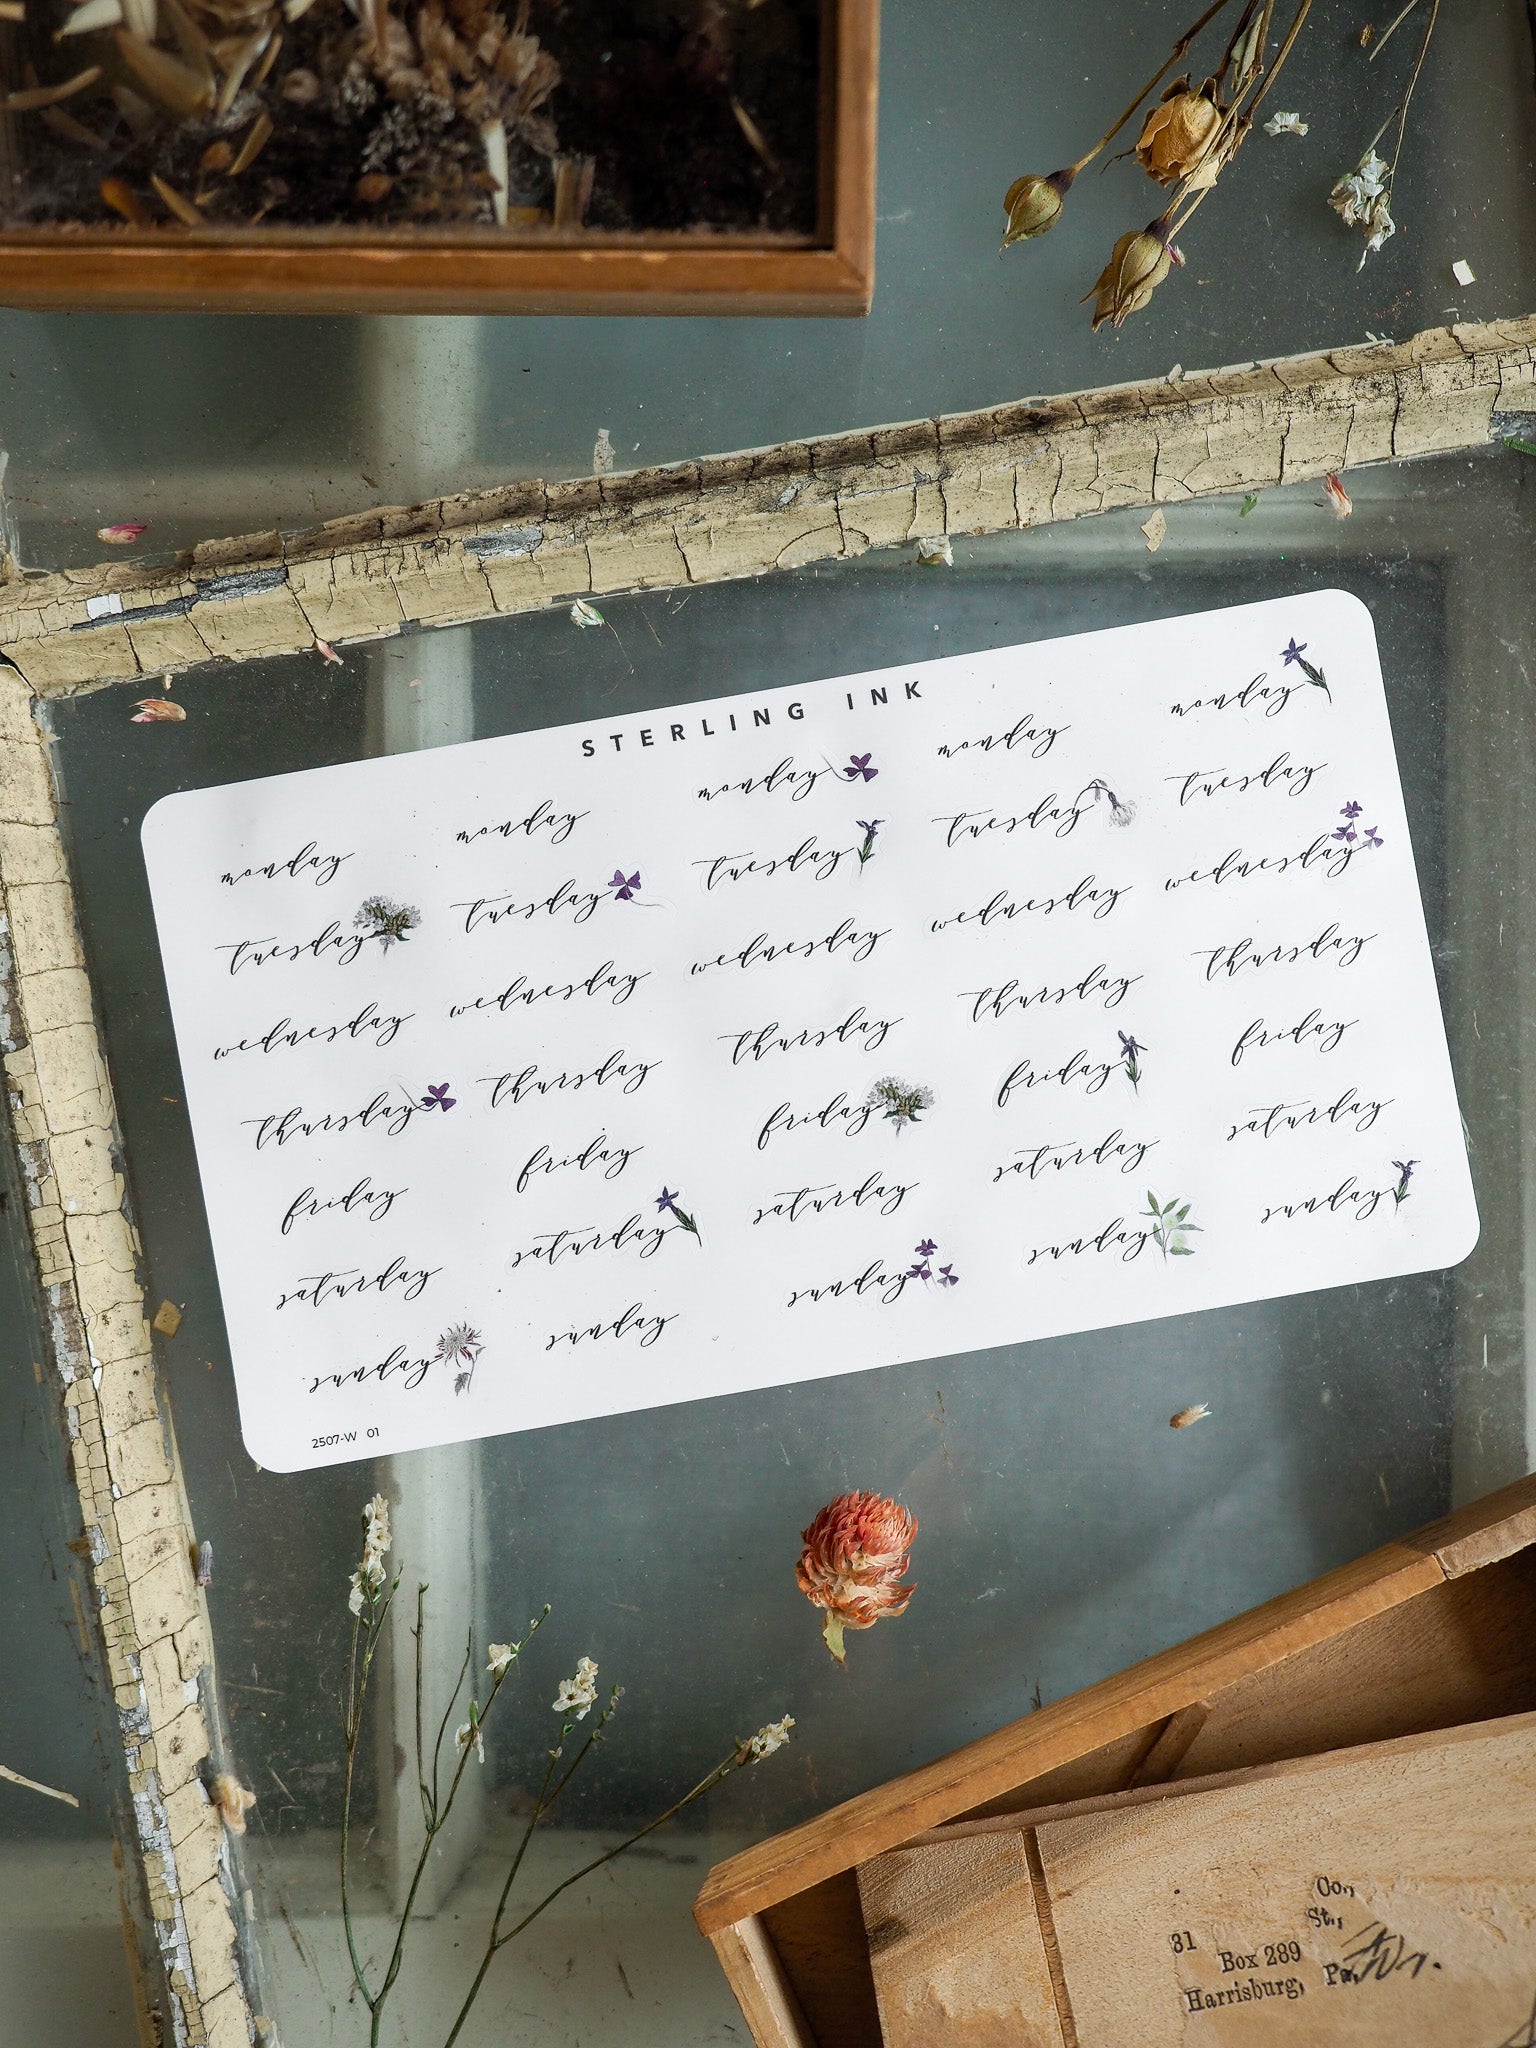 STERLING INK
monday monday monday monday monday
tuesday tuesday tuesday tuesday tuesday
wednesday wednesday wednesday wednesday wednesday
thursday thursday thursday thursday thursday
friday friday friday friday friday
saturday saturday saturday saturday saturday
sunday sunday sunday sunday sunday
2507-W 01
Co.,
31 St.,
Box 289
Harrisburg, Pa.